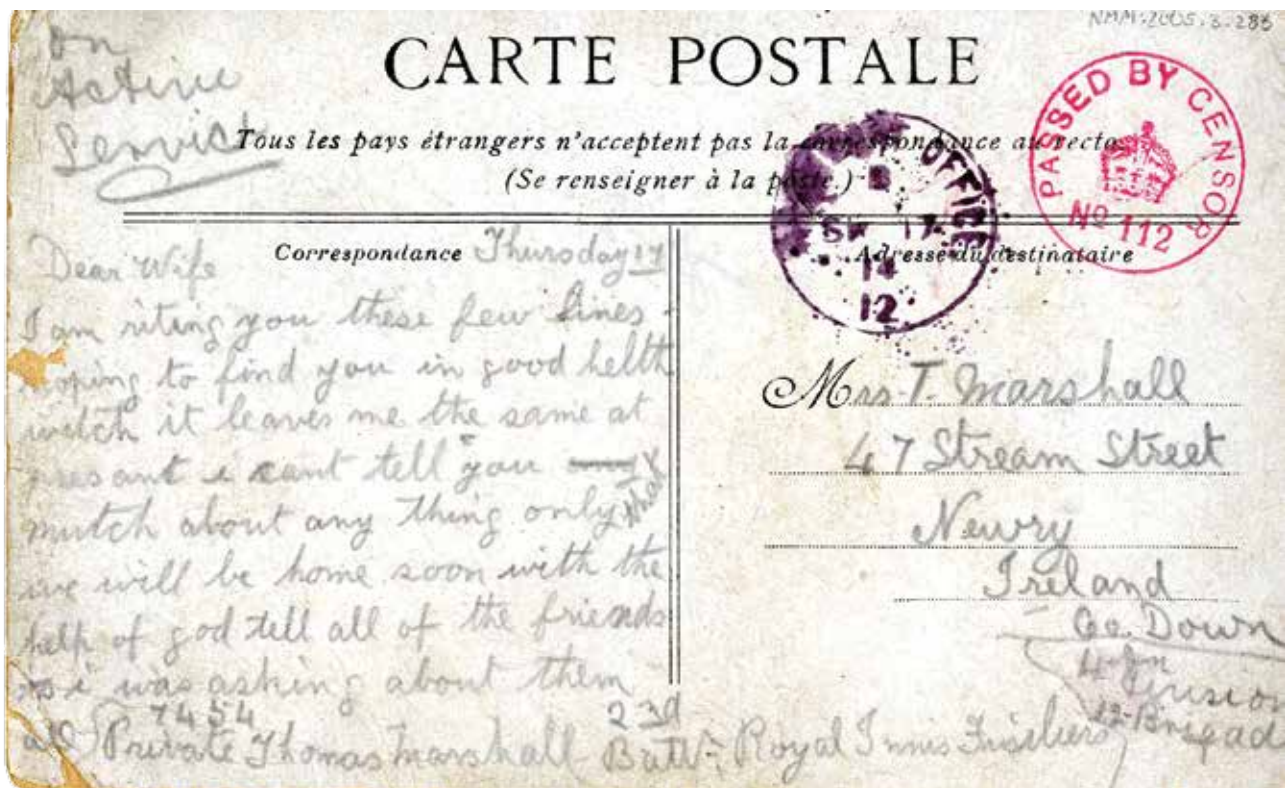 NMM:2005.3.283
on
Active
Service
CARTE POSTALE
Tous les pays étrangers n'acceptent pas la correspondance au recto.
(Se renseigner à la poste.)
PASSED BY CENSOR
Nº 112
OFFICE
17
14
12
Correspondance
Thursday 17
Dear Wife
I am riting you these few lines
hoping to find you in good helth
witch it leaves me the same at
presant i cant tell you
mutch about any thing only that
we will be home soon with the
help of god tell all of the friends
i was asking about them
all
7454
Private Thomas Marshall 2nd Batt. Royal Innis Fusiliers
Adresse du destinataire
Mrs T. Marshall
47 Stream Street
Newry
Ireland
Co. Down
4
12 Brigade